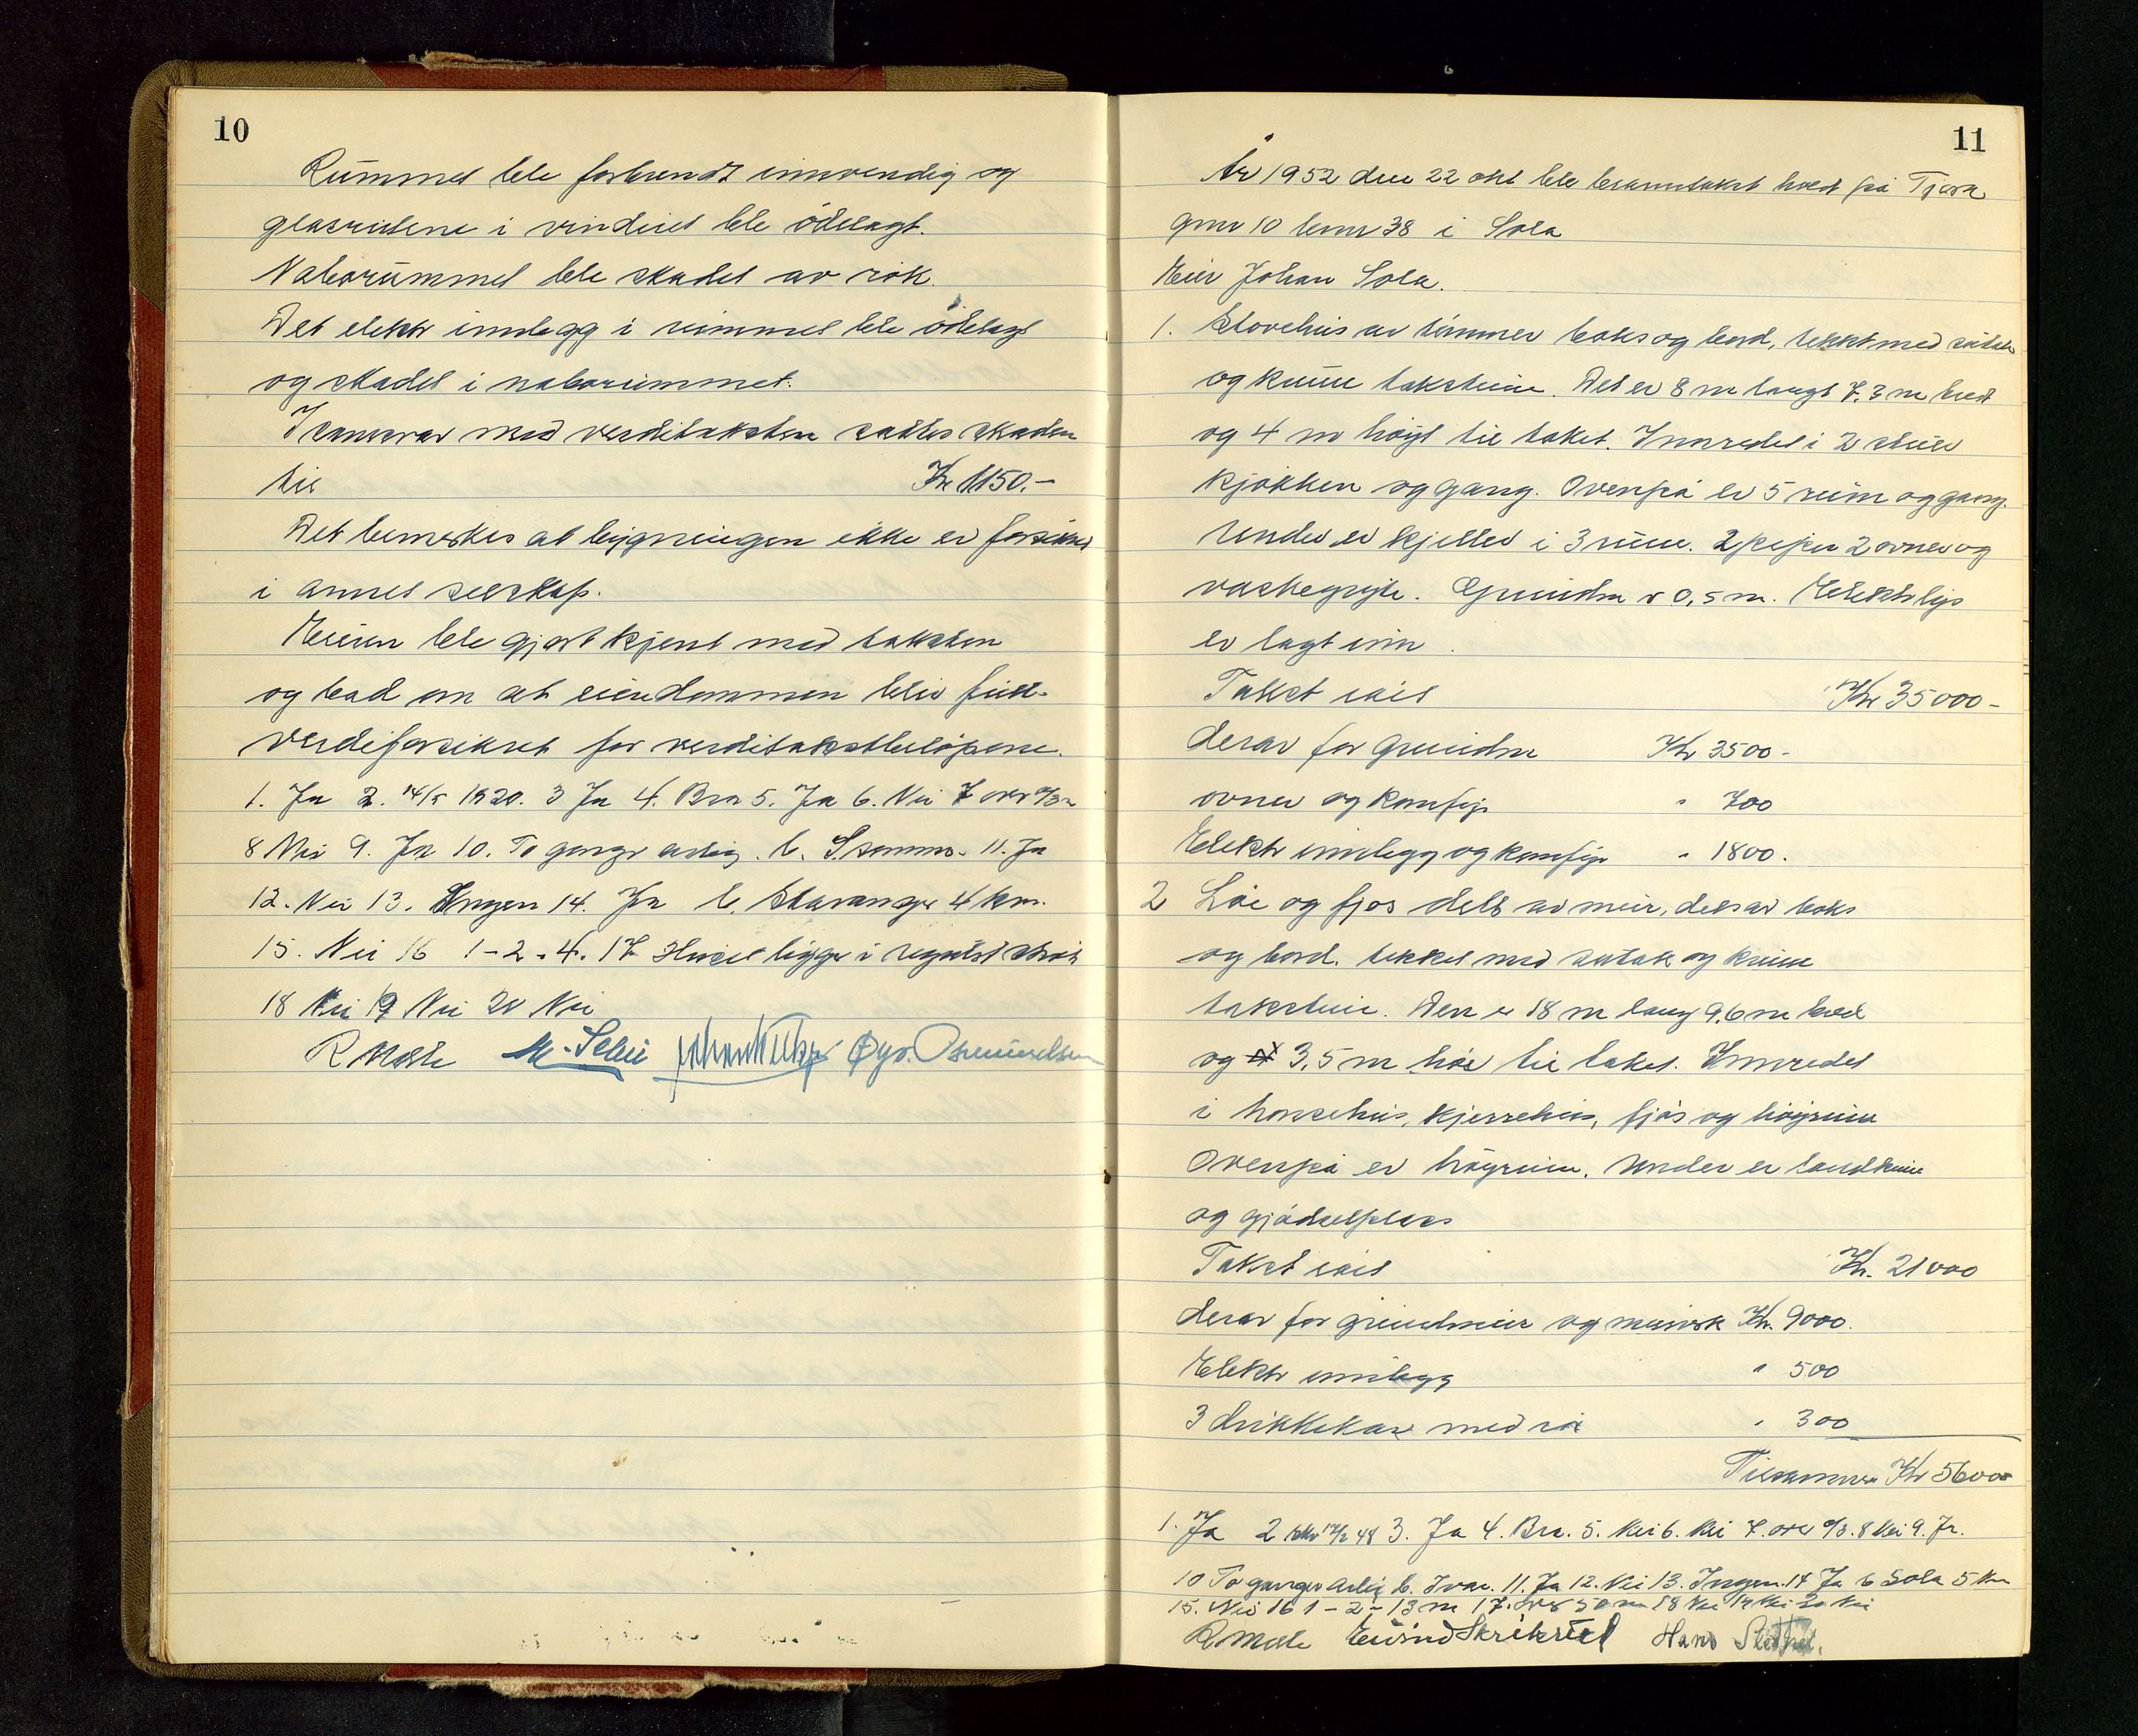 10
Rummet ble forbrendt innvendig og
glasrutene i vinduet ble ödelagt.
Naborummet ble skadet av rök.
Det elektr innlegg i rummet ble ödelagt
og skadet i naborummet.
I samsvar med verditaksten sattes skaden
til Kr 1150.-
Det bemerkes at bygningen ikke er forsikret
i annet selskap.
Eieren ble gjort kjent med taksten
og bad om at eiendommen blir full-
verdiforsikret for verditakstbelöpene.
1. Ja 2. 14/5 1920. 3 Ja 4. Bra 5. Ja 6. Nei 7 over
8 Nei 9. Ja 10. To ganger årlig. b. 11. Ja
12. Nei 13. Ingen 14. Ja b. Stavanger 4 km.
15. Nei 16 1-2-4. 17 Huset ligger i regulert strök
18 Nei 19 Nei 20 Nei
R Mæle Øyv. Osmundsen
11
År 1952 den 22 okt ble branntakst holdt på Tjora
gnr 10 bnr 38 i Sola
Eier Johan Sola.
1. Stovehus av tömmer boks og bord, tekket med sutak
og krum takstein. Det er 8 m langt 7.3 m bredt
og 4 m höyt til taket. Innredet i 2 stuer
kjökken og gang. Ovenpå er 5 rum og gang.
Under er kjeller i 3 rum. 2 piper 2 ovner og
vaskegryte. Grundm er 0,5 m. Elektr lys
er lagt inn.
Takst ialt Kr 35000-
derav for grundm Kr 3500-
ovner og komfyr " 700
Elektr innlegg og komfyr " 1800.
2 Löe og fjös dels av mur, dels av boks
og bord. tekket med sutak og krum
takstein. Den er 18 m lang 9,6 m bred
og 3,5 m höi til taket. Innredet
i hossehus, kjerrehus, fjös og höyrum
Ovenpå er höyrum. Under er landkum
og gjödselplass
Takst ialt Kr. 21000
derav for grundmur og murverk Kr. 9000.
Elektr innlegg " 500
3 drikkekar med rör " 300
Tilsammen Kr 56000
1. Ja 2 48 3. Ja 4. Bra. 5. Nei 6. Nei 7. over 0/3. 8 Nei 9. Ja.
10 To ganger årlig b. Ivar. 11. Ja 12. Nei 13. Ingen. 14 Ja b Sola 5 km
15. Nei 16 1-2-13 m 17. over 50 m 18 Nei 19 Nei 20 Nei
R Mæle Eivind Skrikrud Hans